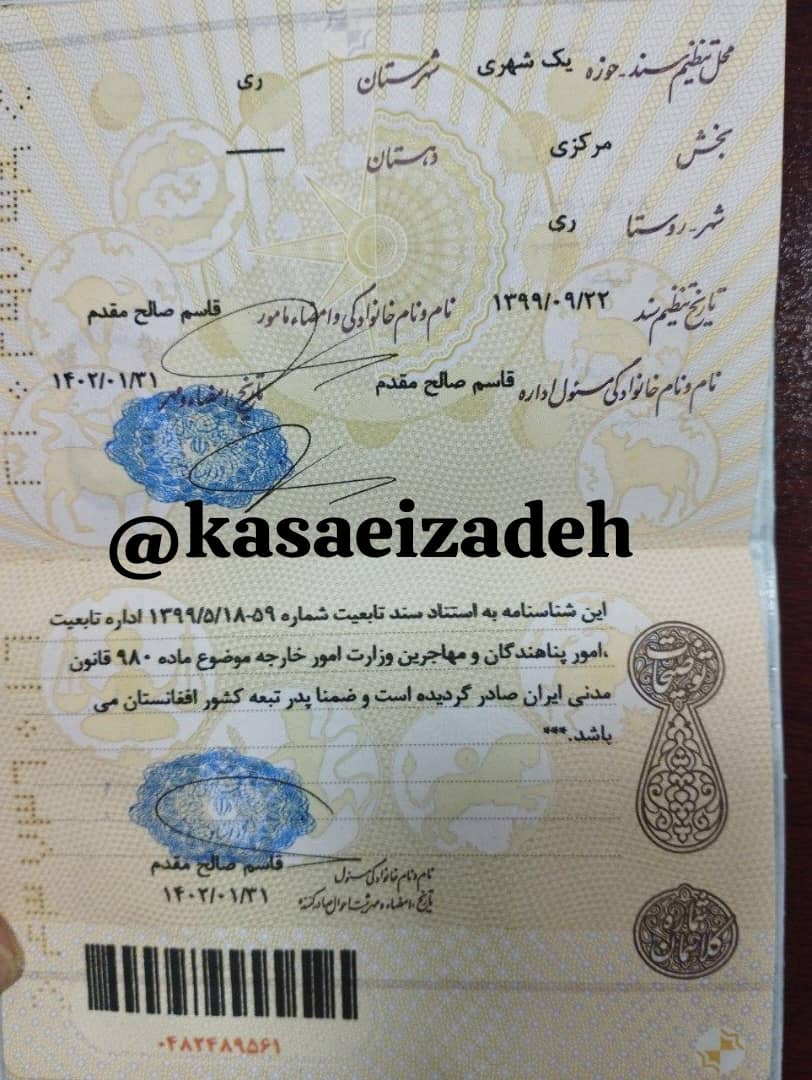 محل تنظیم سند-حوزه یک شهری شهرستان ری
بخش مرکزی دهستان ——
شهر-روستا ری
تاریخ تنظیم سند ۱۳۹۹/۰۹/۲۲ نام و نام خانوادگی و امضاء مامور قاسم صالح مقدم
نام و نام خانوادگی مسئول اداره قاسم صالح مقدم تاریخ، امضاء و مهر ۱۴۰۲/۰۱/۳۱
@kasaeizadeh
این شناسنامه به استناد سند تابعیت شماره ۵۹-۱۳۹۹/۵/۱۸ اداره تابعیت
،امور پناهندگان و مهاجرین وزارت امور خارجه موضوع ماده ۹۸۰ قانون
مدنی ایران صادر گردیده است و ضمنا پدر تبعه کشور افغانستان می
باشد.***
توضیحات
نام و نام خانوادگی مسئول قاسم صالح مقدم
تاریخ، امضاء و مهر ثبت احوال صادر کننده ۱۴۰۲/۰۱/۳۱
شماره کلاسمان
۰۴۸۲۴۸۹۵۶۱